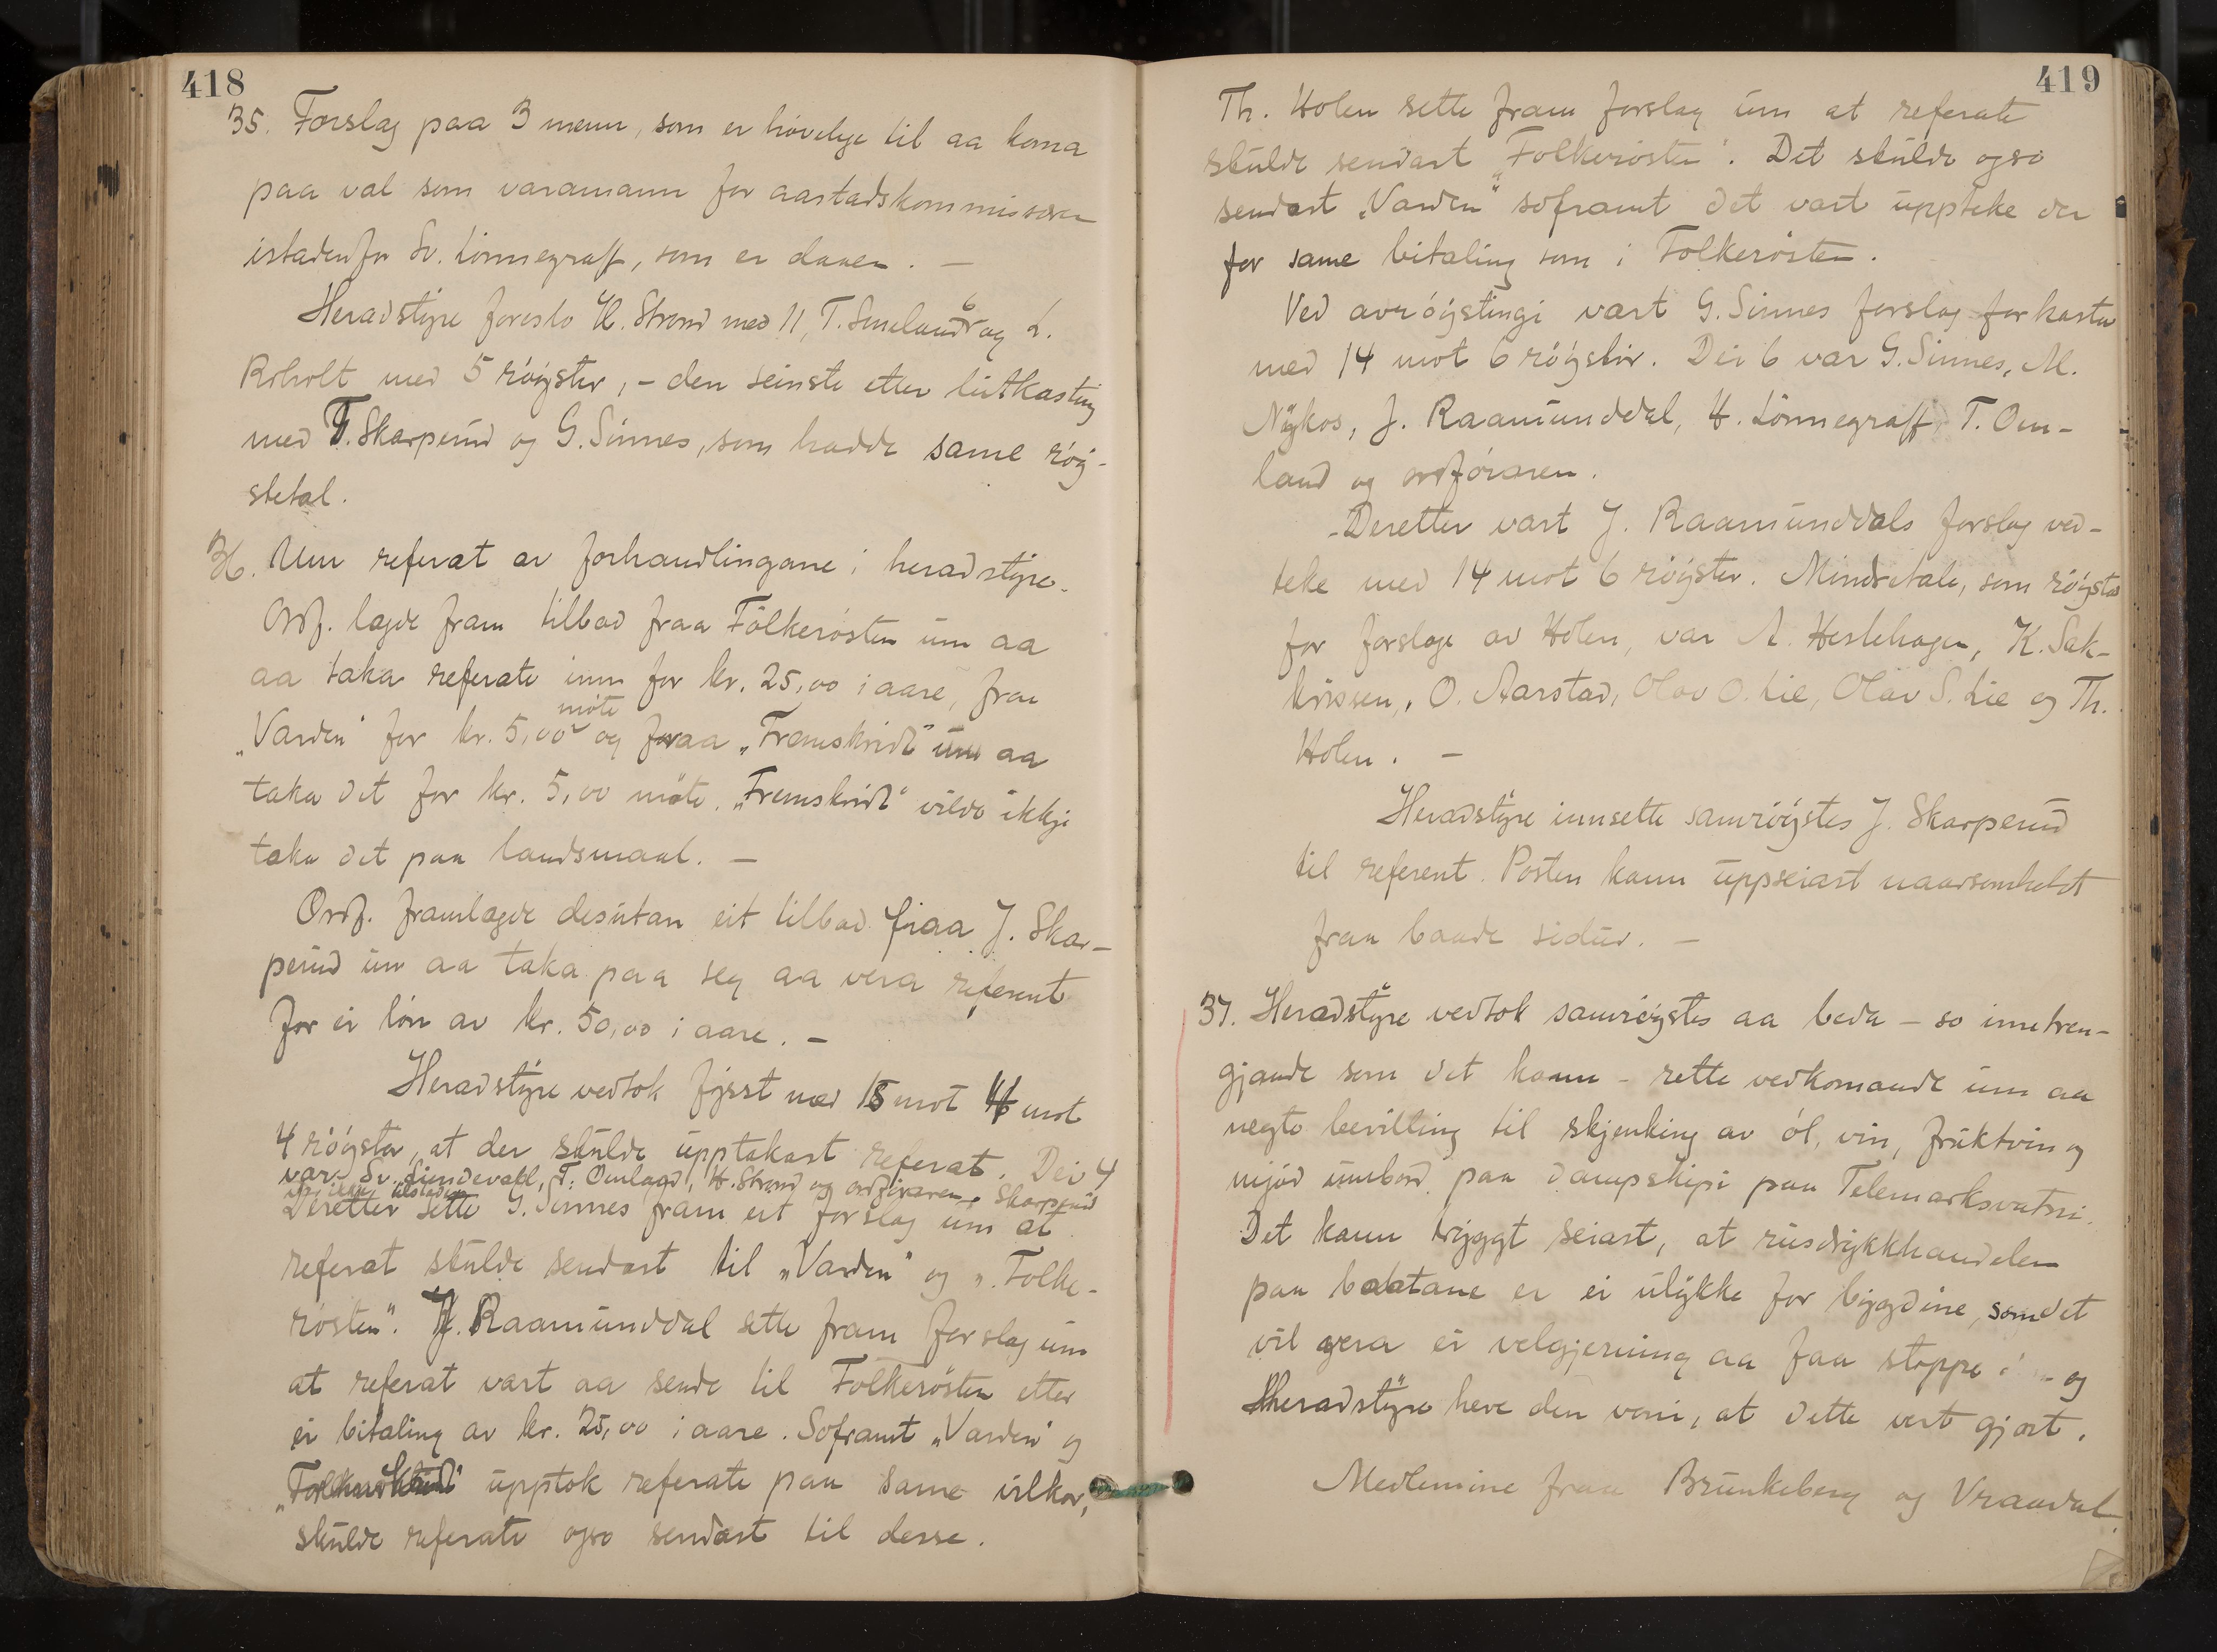 418
35. Forslag paa 3 menn, som er høvelege til aa koma
paa val som varamann for aastadskommissæren
istadenfor Sv. Lönnegraff, som er daaen. —
Heradstÿre foreslo H. Strond med 11, T. Smeland 6 og L.
Roholt med 5 röÿster, – den seinste etter lutkasting
med T. Skarperud og G. Sinnes, som hadde same röÿ-
stetal.
36. Um referat av forhandlingane i heradstÿre.
Ordf. lagde fram tilbod fraa Folkerösten um aa
aa taka referate inn for kr. 25,00 i aare, fraa
„Varden" for kr. 5,00 möte og fraa „Fremskridt" um aa
taka det for kr. 5,00 möte. „Fremskridt" vilde ikkje
taka det paa landsmaal. —
Ordf. framlagde desutan eit tilbod fraa J. Skar-
perud um aa taka paa seg aa vera referent
for ei lön av kr. 50,00 i aare. –
Heradstÿre vedtok fÿrst med 15 mot
4 röÿster, at der skulde upptakast referat. Dei 4
var Sv. Lundevall, T. Omland, H. Strond og ordföraren. Skarperud
var ikkje tilstades
Deretter sette G. Sinnes fram eit forslag um at
referat skulde sendast til „Varden" og „Folke-
rösten". J. Raamunddal sette fram forslag um
at referat vart aa sende til Folkerösten etter
ei bitaling av kr. 25,00 i aare. Soframt „Varden" og
upptok referate paa same vilkor,
skulde referate ogso sendast til desse.
419
Th. Holen sette fram forslag um at referate
skulde sendast „Folkerösten". Det skulde ogso
sendast „Varden" soframt det vart uppteke der
for same bitaling som i Folkerösten.
Ved avröÿstingi vart G. Sinnes forslag forkasta
med 14 mot 6 röÿster. Dei 6 var G. Sinnes, M.
Nÿkos, J. Raamunddal, H. Lönnegraff, T. Om-
land og ordföraren.
Deretter vart J. Raamunddals forslag ved-
teke med 14 mot 6 röÿster. Mindretale, som röÿsta
for forslage av Holen, var A. Heslehagen, K. Sak-
O. Aarstad, Olav O. Lie, Olav S. Lie og Th.
Holen. –
Heradstÿre innsette samröÿstes J. Skarperud
til referent. Posten kann uppseiast naarsomheldt
fraa baade sidur. –
37. Heradstÿre vedtok samröÿstes aa beda – so inntren-
gjande som det kann – rette vedkomande um aa
negte bevilling til skjenking av öl, vin, fruktvin og
mjöd umbord paa dampskipi paa Telemarksvatni.
Det kann trÿggt seiast, at rusdrÿkkhandelen
paa baatane er ei ulÿkke for bÿgdine, som det
vil vera ei velgjerning aa faa stoppe i – og
heradstÿre heve den voni, at dette vert gjort.
Medlemine fraa Brunkeberg og Vraadal